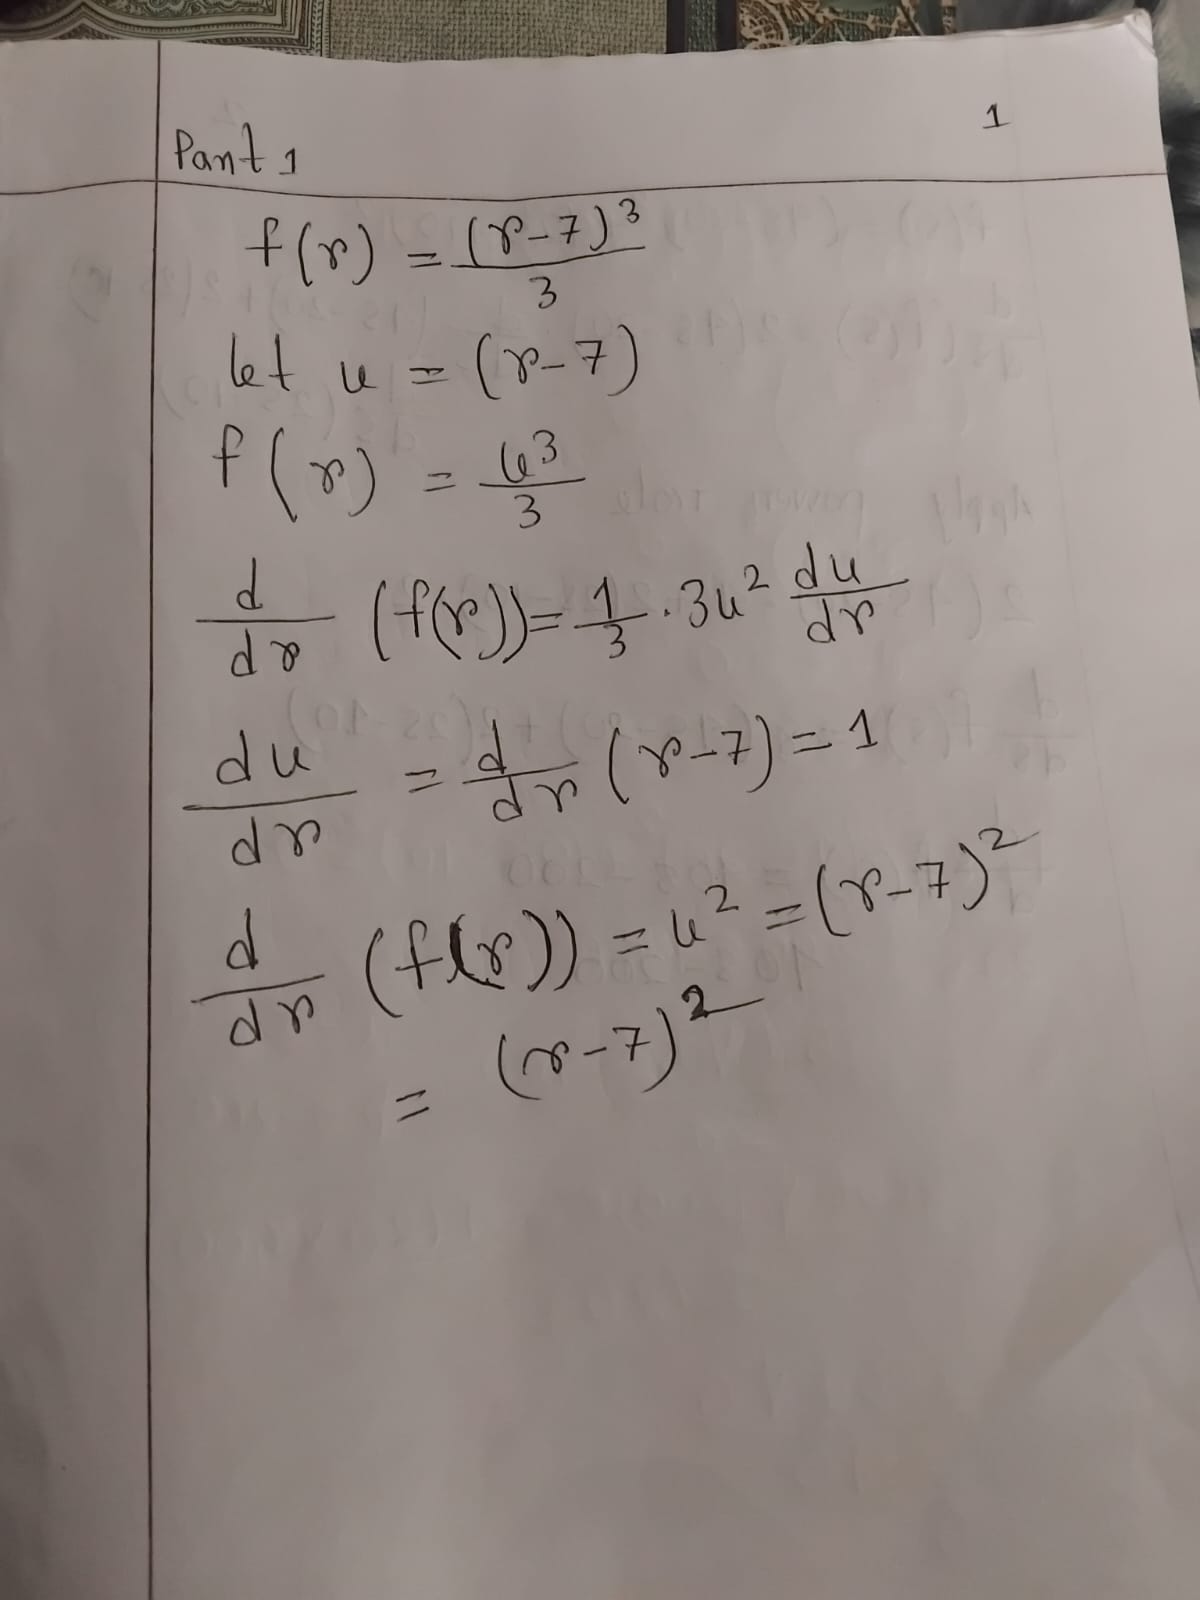 1
Part 1
f(r) = (r-7)³/3
let u = (r-7)
f(r) = u³/3
d/dr (f(r)) = 1/3 . 3u² du/dr
du/dr = d/dr (r-7) = 1
d/dr (f(r)) = u² = (r-7)²
= (r-7)²